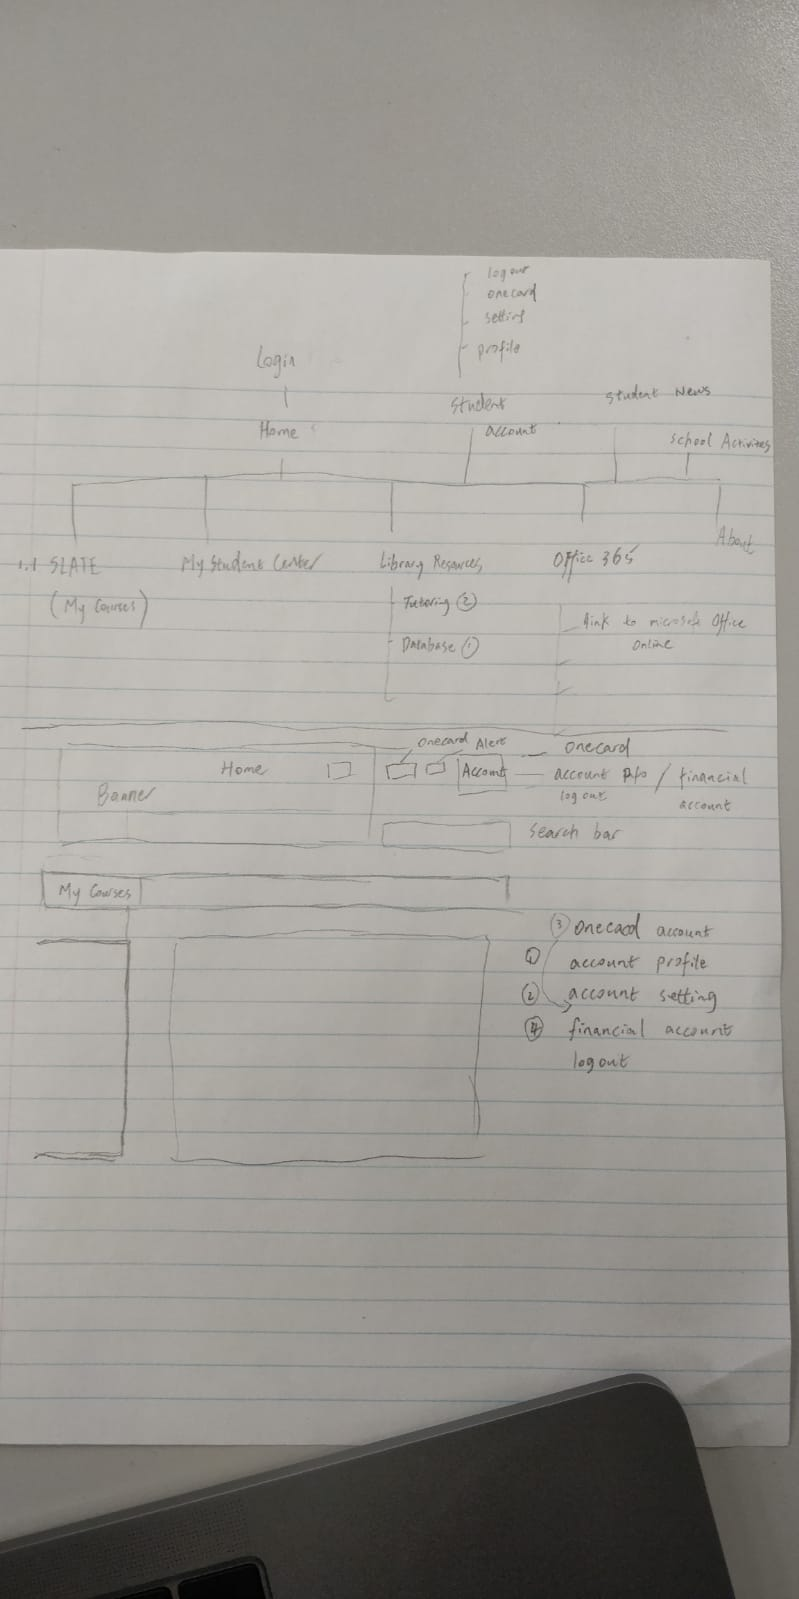 log out
onecard
setting
profile
Login
Student
account
Student News
Home
School Activites
About
1.1 SLATE
(My Courses)
My Student Center
Library Resources
Office 365
Tutoring ②
Database ①
link to microsoft Office
Online
Onecard Alert
Home
Account
onecard
account info / financial
account
log out
Banner
Search bar
My Courses
③ onecard account
① account profile
② account setting
④ financial account
logout